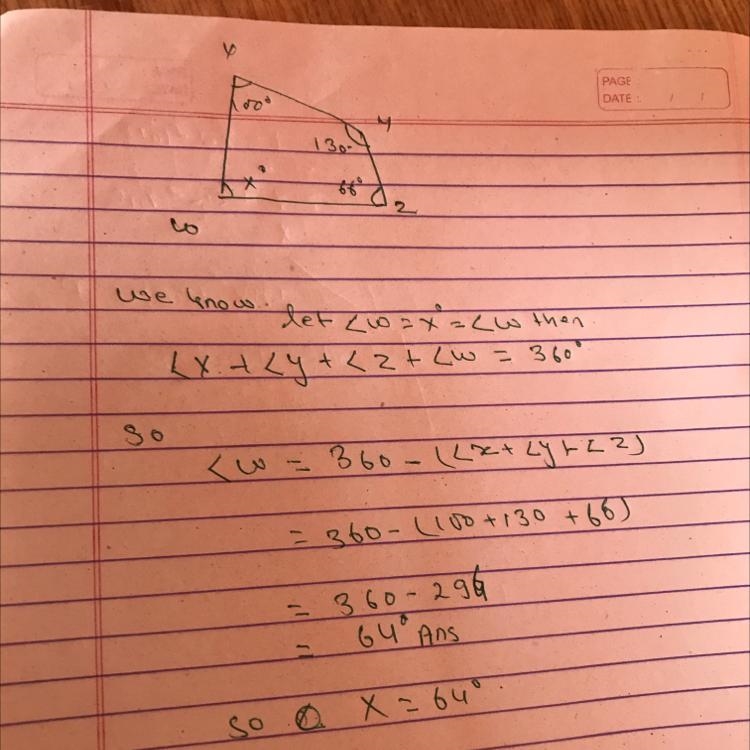 X
PAGE
DATE : / /
100°
y
130°
x°
66°
z
w
we know.
let ∠w = x° = ∠w then
∠x + ∠y + ∠z + ∠w = 360°
So
∠w = 360 - (∠x + ∠y + ∠z)
= 360 - (100 + 130 + 66)
= 360 - 296
= 64° Ans
So X = 64°